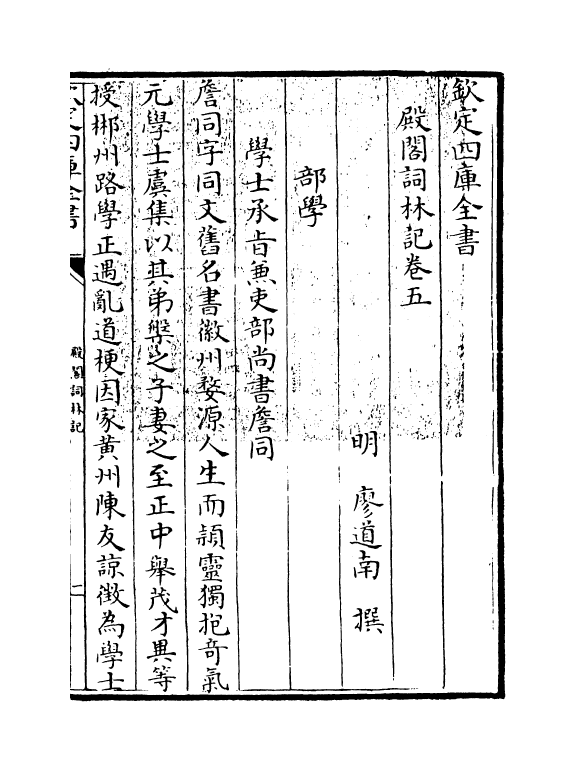 欽定四庫全書
殿閣詞林記卷五
明 廖道南 撰
部學
學士承旨兼吏部尚書詹同
詹同字同文舊名書徽州婺源人生而頴靈獨抱奇氣
元學士虞集以其弟槃之子妻之至正中舉茂才異等
授郴州路學正遇亂道梗因家黄州陳友諒徴為學士
欽定四庫全書
殿閣詞林記